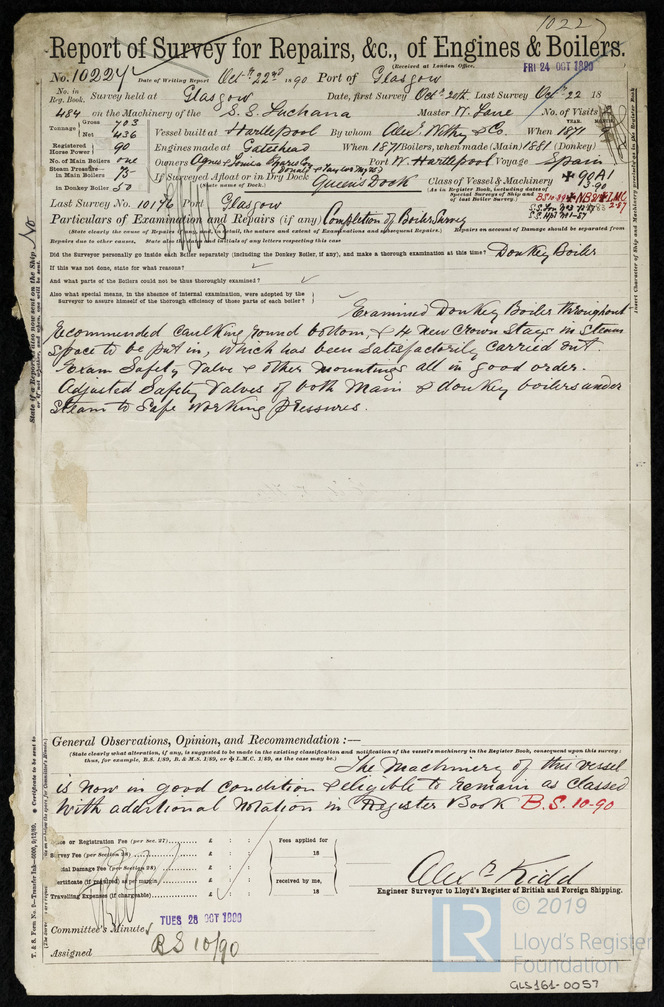 10227
Report of Survey for Repairs, &c., of Engines & Boilers.
(Received at London Office.
FRI 24 OCT 1890
No. 10224 Date of Writing Report Oct. 22nd 1890 Port of Glasgow
No. in Reg. Book. Survey held at Glasgow Date, first Survey Oct. 20th Last Survey Oct. 22 18
484 on the Machinery of the S.S. Luchana Master W. Lane No. of Visits
Tonnage Gross 703 Net 436 Vessel built at Hartlepool By whom Alex. Withy & Co. When 1871
YEAR. MONTH.
Registered Horse Power 90 Engines made at Gateshead When 1871 Boilers, when made (Main) 1881 (Donkey)
No. of Main Boilers one Owners Port W. Hartlepool Voyage Spain
Steam Pressure in Main Boilers 75 If Surveyed Afloat or in Dry Dock Queen's Dock Class of Vessel & Machinery ✠ 90A1
(State name of Dock.) (As in Register Book, including dates of Special Surveys of Ship and of last Boiler Survey.)
in Donkey Boiler 50 3.90
Last Survey No. 10176 Port Glasgow
Particulars of Examination and Repairs (if any) Completion of Boiler Survey
(State clearly the cause of Repairs (if any), and, in detail, the nature and extent of Examinations and subsequent Repairs.) Repairs on account of Damage should be separated from
Repairs due to other causes. State also the dates and initials of any letters respecting this case
Did the Surveyor personally go inside each Boiler separately (including the Donkey Boiler, if any), and make a thorough examination at this time? Donkey Boiler
If this was not done, state for what reasons?
And what parts of the Boilers could not be thus thoroughly examined?
Also what special means, in the absence of internal examination, were adopted by the
Surveyor to assure himself of the thorough efficiency of those parts of each boiler?
Examined Donkey Boiler throughout
Recommended Caulking round bottom, & 4 new Crown Stays in Steam
space to be put in, which has been satisfactorily carried out.
Exam Safety Valve & other mountings all in good order.
Adjusted Safety Valves of both Main & donkey boilers under
Steam to Safe Working Pressures.
General Observations, Opinion, and Recommendation :—
(State clearly what alteration, if any, is suggested to be made in the existing classification and notification of the vessel's machinery in the Register Book, consequent upon this survey;
thus, for example, B.S. 1/89, B. & M.S. 1/89, or ✠ L.M.C. 1/89, as the case may be.)
The Machinery of this vessel
is now in good condition & eligible to remain as classed
with additional notation in Register Book B.S. 10-90
or Registration Fee (per Sec. 27) £ : : Fees applied for
Survey Fee (per Section 28) £ : : 18
Special Damage Fee (per Section 28) £ : :
Certificate (if required) as per margin £ : : received by me,
Travelling Expenses (if chargeable) £ : : 18
Alexr Kidd
Engineer Surveyor to Lloyd's Register of British and Foreign Shipping.
TUES 28 OCT 1890
Committee's Minute
BS 10/90
Assigned
State if a Report is also now sent on the Ship No
Insert Character of Ship and Machinery precisely as in the Register Book
T. & S. Form No. 9—Transfer Ink
Certificate to be sent to
LR
© 2019
Lloyd's Register
Foundation
GLS161-0057